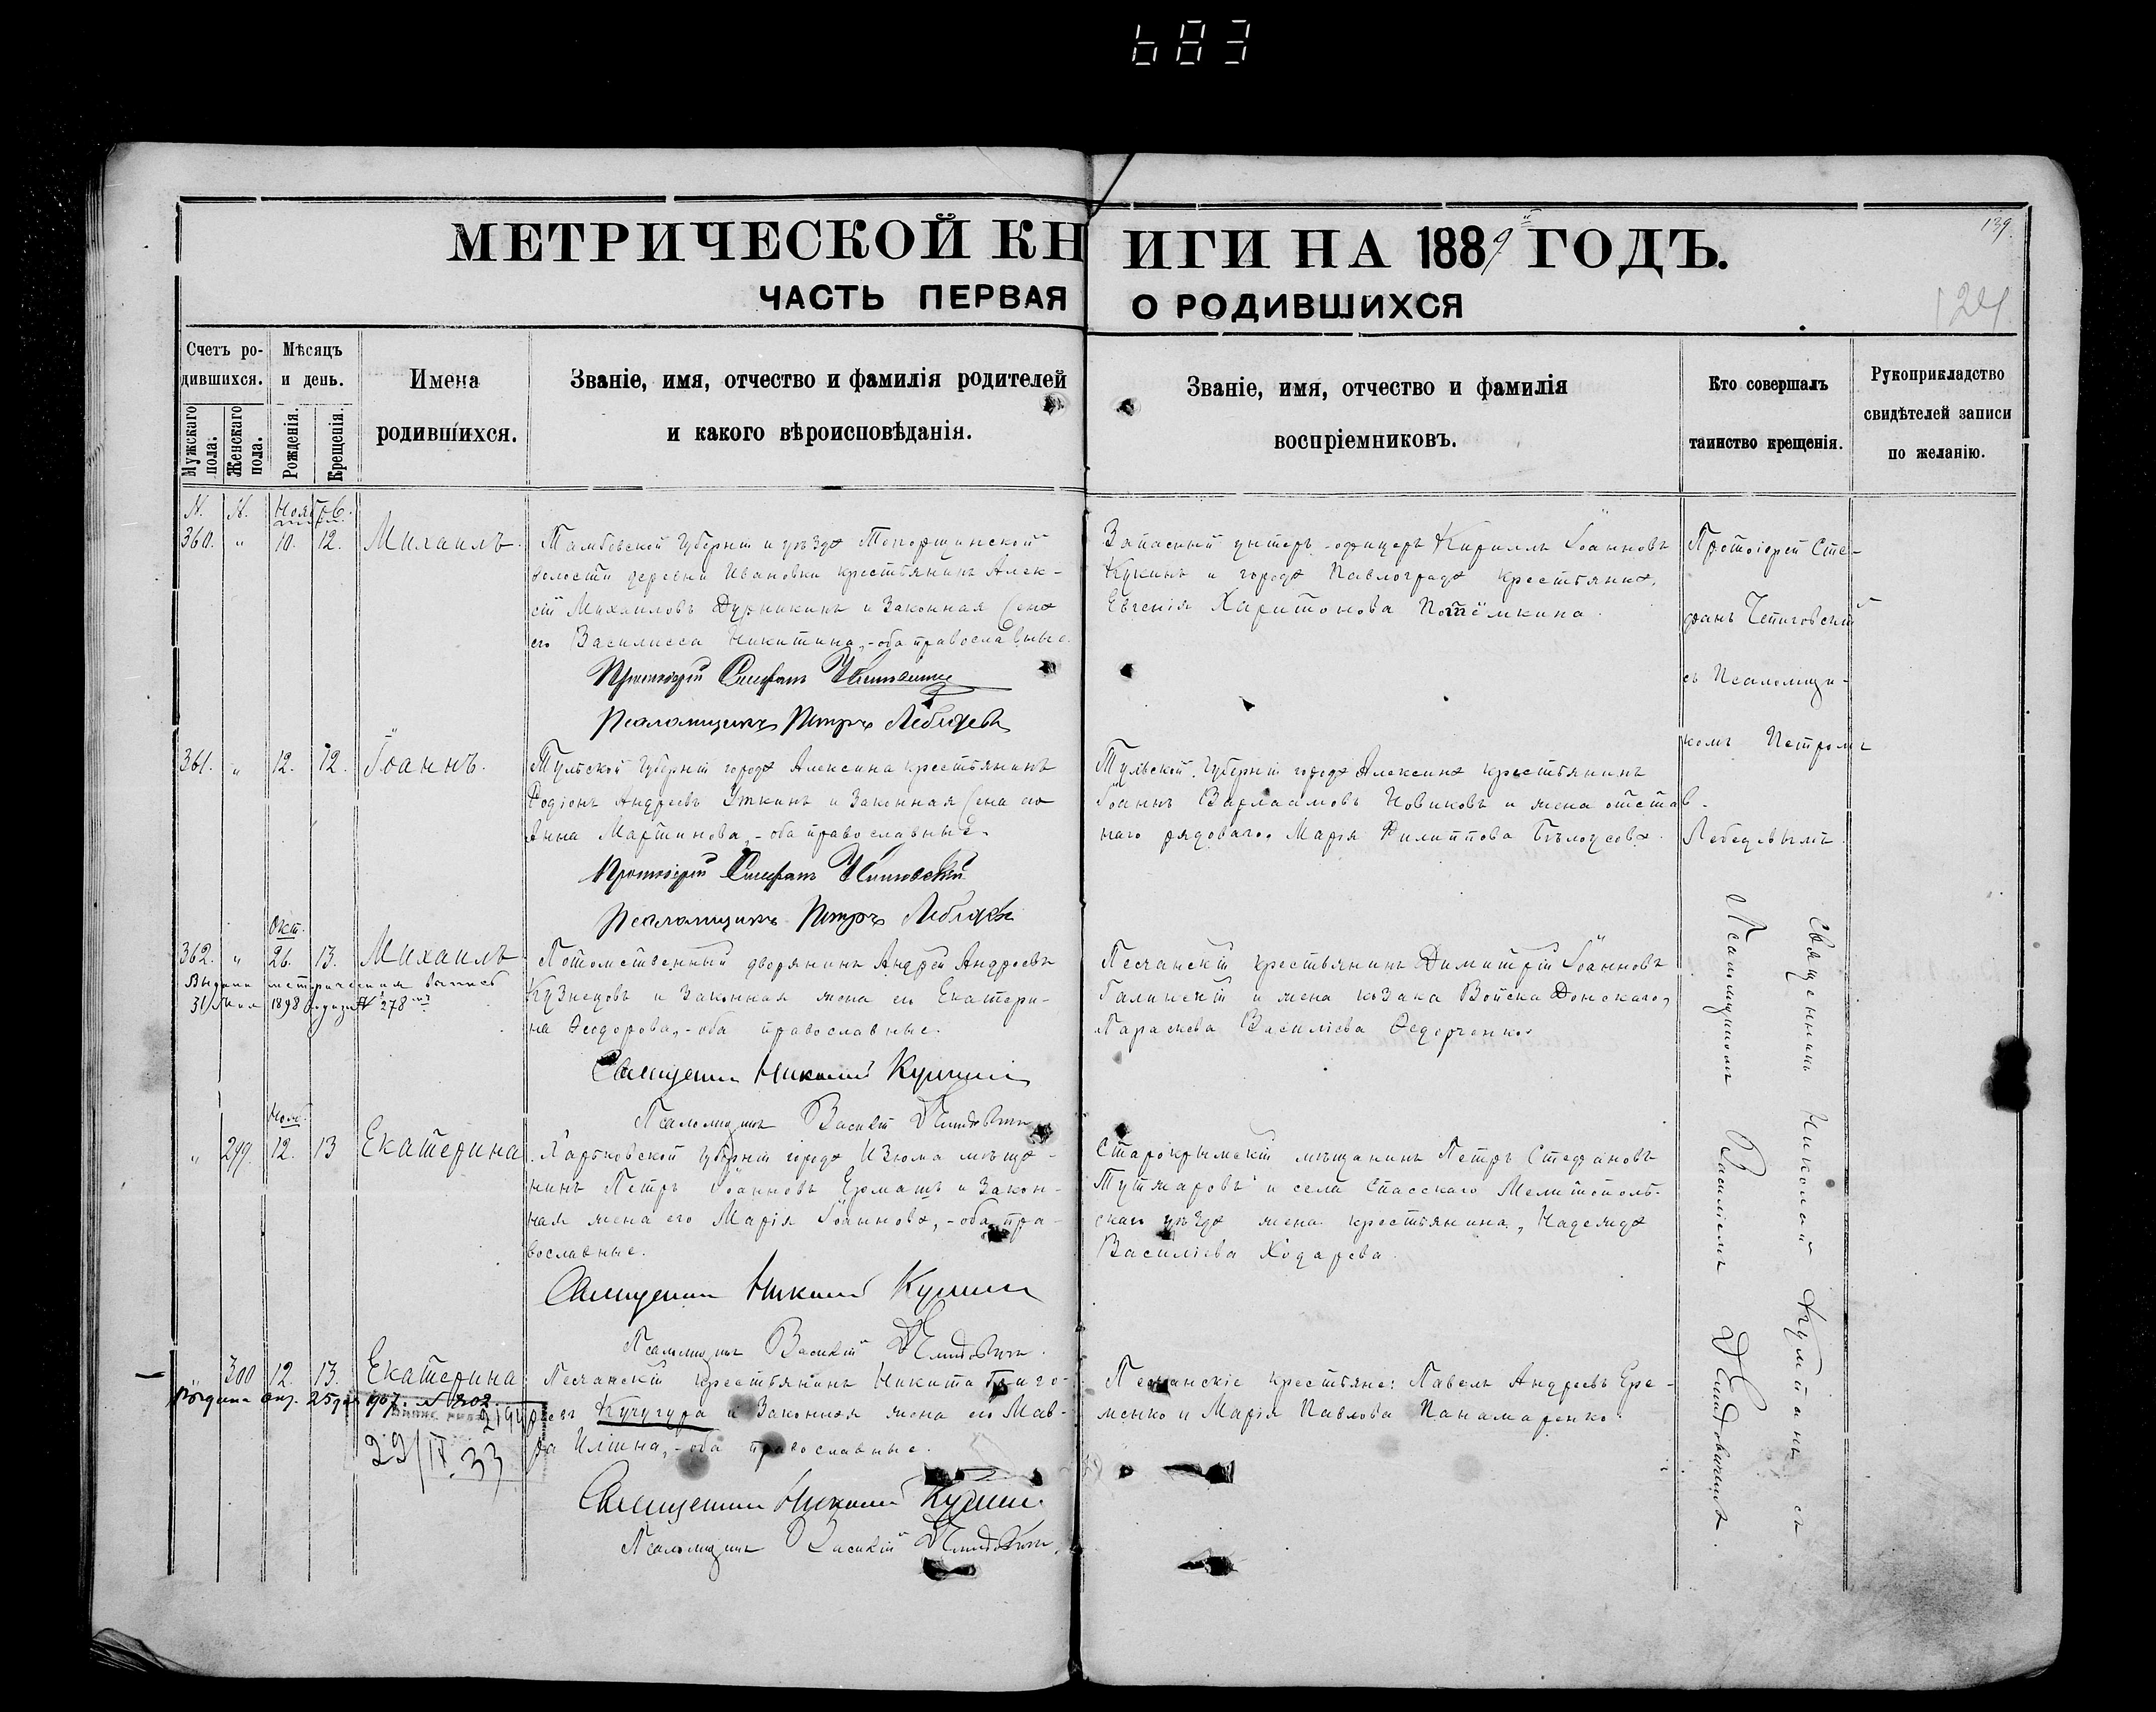 683
МЕТРИЧЕСКОЙ КНИГИ НА 1889й ГОДЪ.
139.
ЧАСТЬ ПЕРВАЯ О РОДИВШИХСЯ
124
Счетъ ро-
дившихся.
Мужскаго пола.
Женскаго пола.
Мѣсяцъ
и день.
Рожденія.
Крещенія.
Имена
родившихся.
Званіе, имя, отчество и фамилія родителей
и какого вѣроисповѣданія.
Званіе, имя, отчество и фамилія
воспріемниковъ.
Кто совершалъ
таинство крещенія.
Рукоприкладство
свидѣтелей записи
по желанію.
N. N. Нояб.
360. " 10. 12. Михаилъ.
Тамбовской Губерніи и уѣзда
волости деревни Ивановки крестьянинъ Алек-
сій Михаиловъ и законная жена
его Василисса Никитина,-оба православные.
Протоіерей Стефанъ
Псаломщикъ Петръ Лебедевъ
Запасный унтеръ-офицеръ Кириллъ Іоанновъ
Кукинъ и города Павлограда крестьянка,
Евгенія Харитонова Потёмкина.
Протоіерей Сте-
фанъ
съ Псаломщи-
комъ Петромъ
Лебедевымъ.
361. " 12. 12. Іоаннъ.
Тульской Губерніи города Алексина крестьянинъ
Родіонъ Андреевъ Уткинъ и законная жена его
Анна Мартинова,-оба православные.
Протоіерей Стефанъ
Псаломщикъ Петръ Лебедевъ
Тульской Губерніи города Алексина крестьянинъ
Іоаннъ Варлаамовъ Новиковъ и жена отстав-
наго рядоваго, Марія Филиппова Бѣлоусова.
Окт.
362. " 26. 13. Михаилъ
Выдана метрическая выпись
31 1898 года № 278
Потомственный дворянинъ Андрей Андреевъ
Кузнецовъ и законная жена его Екатери-
на Ѳеодорова,-оба православные.
Священникъ Николай
Псаломщикъ Василій
Песчанскій крестьянинъ Димитрій Іоанновъ
Галинскій и жена козака Войска Донскаго,
Параскева Василіева Ѳедорченко.
Священникъ Николай съ
Псаломщикомъ Василіемъ
Нояб.
" 299. 12. 13 Екатерина
Харьковской Губерніи города Изюма мѣща-
нинъ Петръ Іоанновъ Ермашъ и закон-
ная жена его Марія Іоаннова,-оба пра-
вославные.
Священникъ Николай
Псаломщикъ Василій
Старокрымскій мѣщанинъ Петръ Стефановъ
и села Спасскаго Мелитополь-
скаго уѣзда жена крестьянина, Надежда
Василіева Ходарева.
" 300 12. 13. Екатерина
Выдана 25 1907. № 202
29/IV.33
Песчанскій крестьянинъ Никита Григо-
рьевъ Кучугура и законная жена его Мав-
ра Иліина,-оба православные.
Священникъ Николай
Псаломщикъ Василій
Песчанскіе крестьяне: Павелъ Андреевъ Ере-
менко и Марія Павлова Панамаренко.